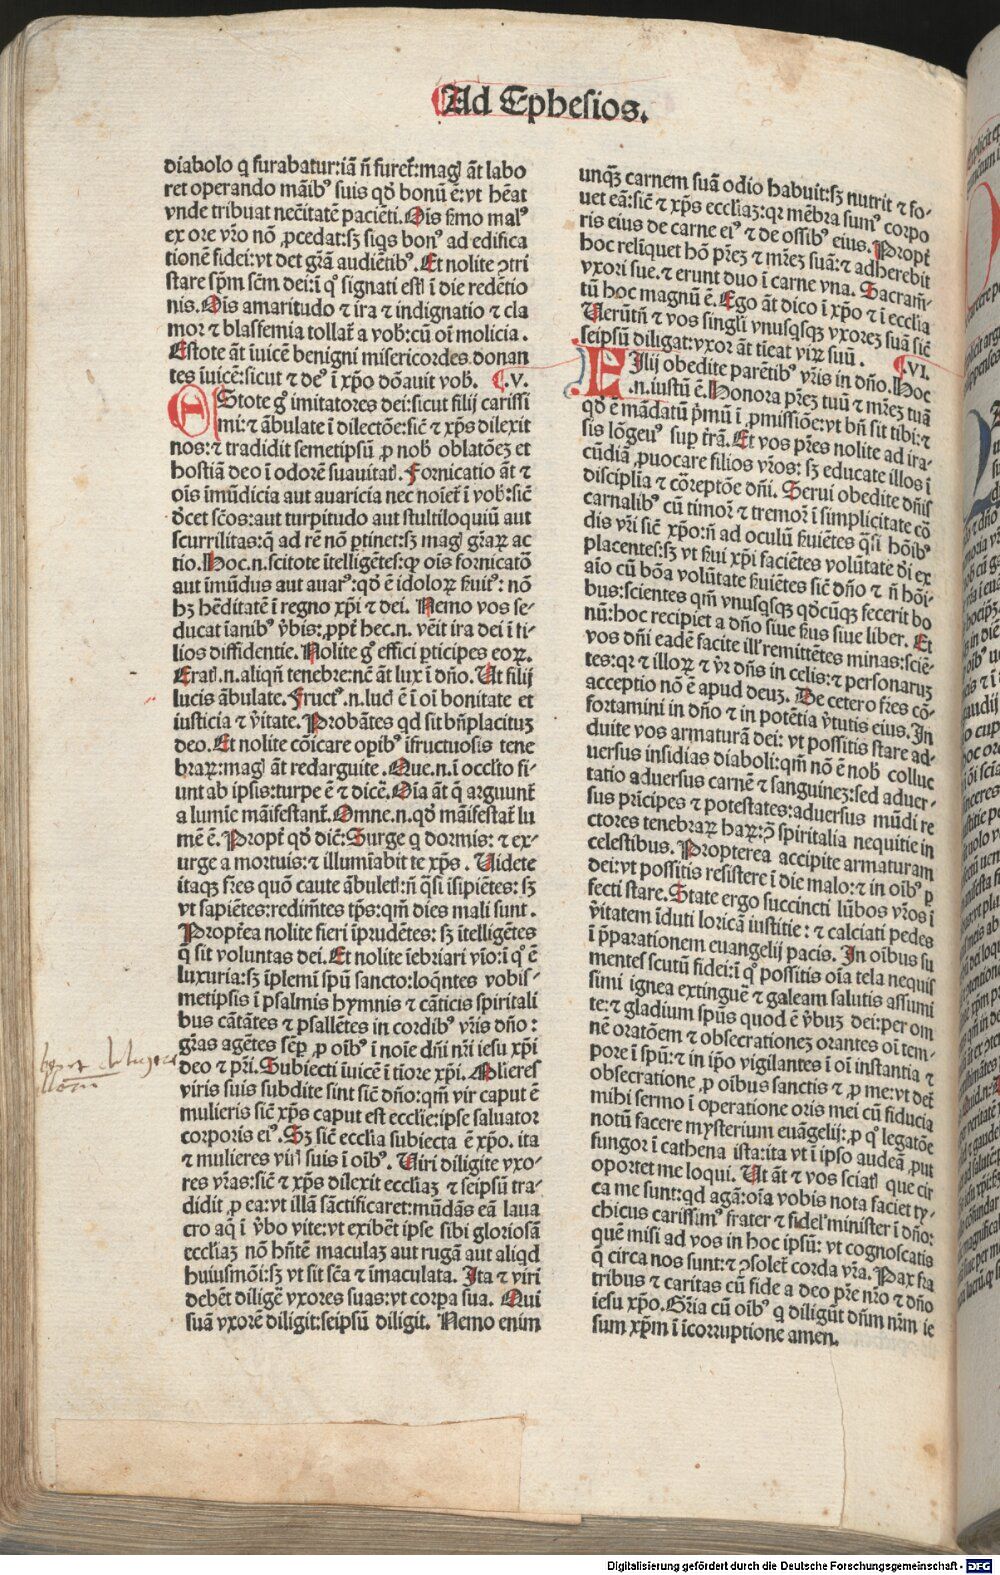 Ad Ephesios.
diabolo q̄ furabatur: iā nō furet᷑: magꝭ āt labo
ret operando māibꝰ suis qd̓ bonū ē: vt hēat
vnde tribuat necitatē paciēti. Ois s̓mo malꝰ
ex ore vr̄o nō ꝓcedat: sꝫ siqs bonꝰ ad edifica
tionē fidei: vt det gr̄aꝫ audiētibꝰ. Et nolite ꝯtri
stare sp̄m sc̄m dei: ī qͦ signati estꝭ ī die redētio
nis. Ois amaritudo ⁊ ira ⁊ indignatio ⁊ cla
mor ⁊ blasfemia tollat᷑ a vob̓: cū oī molicia.
Estote āt īuicē benigni misericordes. donan
tes īuicē: sicut ⁊ deꝰ ī xp̄o dōauit vob̓. .V.
EStote gͦ imitatores dei: sicut filij carissi
mi: ⁊ ābulate ī dilectōe: sic̄ ⁊ xp̄s dilexit
nos: ⁊ tradidit semetipsū ꝓ nob̓ oblatōeꝫ et
hostiā deo ī odorē suauitatꝭ. Fornicatio āt ⁊
oīs īmūdicia aut auaricia nec noīet᷑ ī vob̓: sic̄
dꝫcet sc̄os: aut turpitudo aut stultiloquiū aut
scurrilitas: q̄ ad rē nō ꝑtinet: sꝫ magꝭ gr̄aꝝ ac
tio. Hoc .n. scitote ītelligētes: ꝙ oīs fornicatō
aut īmūdus aut auarꝰ: qd̓ ē idoloꝝ s̓uitꝰ: nō
hꝫ hēditatē ī regno xp̄i ⁊ dei. Nemo vos se-
ducat īanibꝰ v̓bis: ꝓpt᷑ hec .n. vēit ira dei ī fi-
lios diffidentie. Nolite gͦ effici ꝑticipes eoꝝ.
Eratꝭ .n. aliqn̄ tenebre: nūc āt lux ī dn̄o. Ut filij
lucis ābulate. Fructꝰ .n. lucꝭ ē ī oī bonitate et
iusticia ⁊ v̓itate. Probātes qd sit bn̄placituꝫ
deo. Et nolite cōicare opibꝰ ifructuosis tene
braꝝ: magꝭ āt redarguite. Que .n. ī occl̓to fi-
unt ab ipsis: turpe ē ⁊ dicē. Oīa āt q̄ arguunt᷑
a lumīe māifestant᷑. Omne .n. qd̓ māifestat᷑ lu
mē ē. Propt᷑ qd̓ dic̄: Surge q dormis: ⁊ ex-
urge a mortuis: ⁊ illumīabit te xp̄s. Uidete
itaqꝫ fr̄es quō caute ābuletꝭ: nō q̄si īsipiētes: sꝫ
vt sapiētes: redimētes tp̄s: qm̄ dies mali sunt.
Propt᷑ea nolite fieri īprudētes: sꝫ ītelligētes
q̄ sit voluntas dei. Et nolite īebriari vīo: ī qͦ ē
luxuria: sꝫ īplemī sp̄u sancto: loqn̄tes vobis-
metipsis ī psalmis hymnis ⁊ cāticis spiritali
bus cātātes ⁊ psallētes in cordibꝰ vr̄is dn̄o:
gr̄as agētes sēꝑ ꝓ oībꝰ ī noīe dn̄i nr̄i iesu xp̄i
deo ⁊ pr̄i. Subiecti īuicē ī tiore xp̄i. Mlieres
viris suis subdite sint sic̄ dn̄o: qm̄ vir caput ē
mulieris sic̄ xp̄s caput est ecclie: ipse saluator
corporis eiꝰ. Sꝫ sic̄ ecclīa subiecta ē xp̄o. ita
⁊ mulieres virꝭ suis ī oībꝰ. Uiri diligite vxo-
res vr̄as: sic̄ ⁊ xp̄s dilexit eccliaꝫ ⁊ seipsū tra-
didit ꝓ ea: vt illā sāctificaret: mūdās eā laua
cro aq̄ ī v̓bo vite: vt exibēt ipse sibi gloriosā
eccliaꝫ nō hn̄tē maculaꝫ aut rugā aut aliqd
huiusmōi: sꝫ vt sit sc̄a ⁊ īmaculata. Ita ⁊ viri
debēt diligē vxores suas: vt corꝑa sua. Qui
suā vxorē diligit: seipsū diligit. Nemo enim
unqꝫ carnem suā odio habuit: sꝫ nutrit ⁊ fo-
uet eā: sic̄ ⁊ xp̄s eccliaꝫ: qꝛ mēbra sumꝰ corpo
ris eius de carne eiꝰ ⁊ de ossibꝰ eius. Propt᷑
hoc relīquet hō pr̄eꝫ ⁊ mr̄eꝫ suā: ⁊ adherebit
vxori sue. ⁊ erunt duo ī carne vna. Sacram̄-
tū hoc magnū ē. Ego āt dico ī xp̄o ⁊ ī ecclia
Uerūtn̄ ⁊ vos singlī vnusqsqꝫ vxoreꝫ suā sic̄
seipsū diligat: vxor āt tīeat viꝝ suū. .VI.
FIlij obedite parētibꝰ vr̄is in dn̄o. Hoc
.n. iustū ē. Honora pr̄eꝫ tuū ⁊ mr̄eꝫ tuā
qd̓ ē mādatū p̄mū ī ꝓmissiōe: vt bn̄ sit tibi: ⁊
sis lōgeuꝰ suꝑ tr̄ā. Et vos pr̄es nolite ad ira-
cūdiā ꝓuocare filios vr̄os: sꝫ educate illos ī
disciplīa ⁊ correptōe dn̄i. Serui obedite dn̄is
carnalibꝰ cū timorꝭ ⁊ tremorꝭ ī simplicitate cō
dis vr̄i sic̄ xp̄o: nō ad oculū s̓uiētes q̄si hoībꝰ
placentes: sꝫ vt s̓ui xp̄i faciētes volūtatē dei ex
aīo cū bōa volūtate s̓uiētes sic̄ dn̄o ⁊ nō hoī-
bus: scientes qm̄ vnusqsqꝫ qd̓cūqꝫ fecerit bo
nū: hoc recipiet a dn̄o siue s̓us siue liber. Et
vos dn̄i eadē facite illꝭ remittētes minas: sciē-
tes: qꝛ ⁊ illoꝝ ⁊ vr̄ dn̄s in celis: ⁊ personaruꝫ
acceptio nō ē apud deuꝫ. De cetero fr̄es cō-
fortamini in dn̄o ⁊ in potētia v̓tutis eius. In
duite vos armaturā dei: vt possitis stare ad-
uersus insidias diaboli: qm̄ nō ē nob̓ colluc
tatio aduersus carnē ⁊ sanguineꝫ: sed aduer-
sus prīcipes ⁊ potestates: aduersus mūdi re
ctores tenebraꝝ haꝝ: ꝯ spiritalia nequitie in
celestibus. Propterea accipite armaturam
dei: vt possitis resistere ī die malo: ⁊ in oībꝰ ꝑ
fecti stare. State ergo succincti lūbos vr̄os ī
v̓itatem īduti loricā iustitie: ⁊ calciati pedes
ī p̄parationem euangelij pacis. In oībus su
mentes scutū fidei: ī qͦ possitis oīa tela nequis
simi ignea extinguē ⁊ galeam salutis assumi
te: ⁊ gladium sp̄us quod ē v̓buꝫ dei: per om
nē oratōem ⁊ obsecrationeꝫ orantes oī tem-
pore ī sp̄u: ⁊ in ip̄o vigilantes ī oī instantia ⁊
obsecratione ꝓ oībus sanctis ⁊ ꝓ me: vt det᷑
mihi sermo ī operatione oris mei cū fiducia
notū facere mysterium euāgelij: ꝓ qͦ legatōe
fungor ī cathena ista: ita vt ī ipso audeā ꝓut
oportet me loqui. Ut āt ⁊ vos sciatꝭ que cir
ca me sunt: qd agā: oīa vobis nota faciet ty-
chicus carissimꝰ frater ⁊ fidelꝭ minister ī dn̄o:
quē misi ad vos in hoc ipsū: vt cognoscatis
q̄ circa nos sunt: ⁊ ꝯsolet᷑ corda vr̄a. Pax fra
tribus ⁊ caritas cū fide a deo pr̄e nr̄o ⁊ dn̄o
iesu xp̄o. Gr̄ia cū oībꝰ q diligūt dn̄m nr̄m ie
sum xp̄m ī īcorruptione amen.
Digitalisierung gefördert durch die Deutsche Forschungsgemeinschaft - DFG